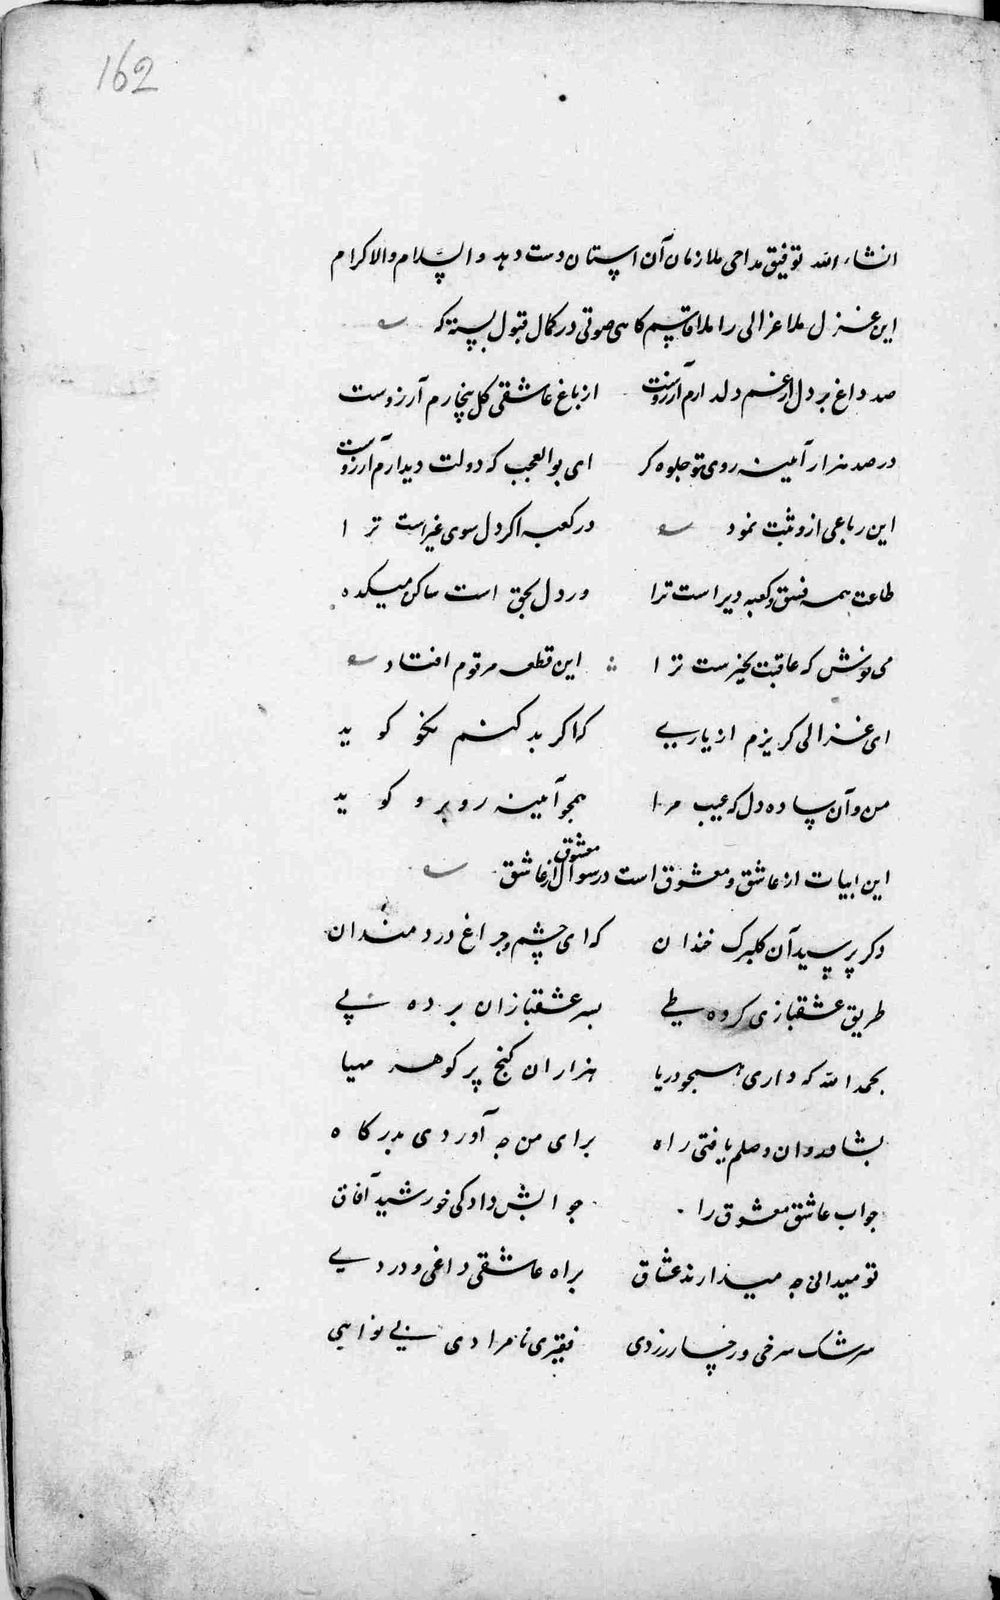 162
انشاء الله توفیق مداحی ملازمان آن آستان دست دهد والسلام والاکرام
این غزل ملا غزالی را ملا قاسم کاهی صوتی در کمال قبول بسته که
صد داغ بر دل از غم دلدارم آرزوست از باغ عاشقی کل بیخارم آرزوست
در صد هزار آیینه روی تو جلوه کر ای بوالعجب که دولت دیدارم آرزوست
این رباعی ازو ثبت نمود در کعبه اکر دل سوی غیر است ترا
طاعت همه فسق و کعبه دیر است ترا ور دل بحق است ساکن میکده
می نوش که عاقبت بخیرست ترا این قطعه مرقوم افتاد
ای غزالی کریزم از یاری که اکر بد کنم نکو کوید
من و آن ساده دل که عیب مرا همچو آیینه روبرو کوید
این ابیات از عاشق و معشوق است در سوال معشوق از عاشق
دکر پرسید آن کلبرک خندان که ای چشم و چراغ دردمندان
طریق عشقبازی کرده طی بسر عشقبازان برده پی
بحمد الله که داری همچو دریا هزاران کنج پر کوهر مهیا
بشادروان وصلم یافتی راه برای من چه آوردی بدرکاه
جواب عاشق معشوق را جوابش داد کی خورشید آفاق
تو میدانی چه میدارند عشاق براه عاشقی داغی و دردی
سرشک سرخی و رخسار زردی فقیری نامرادی بی نوایی